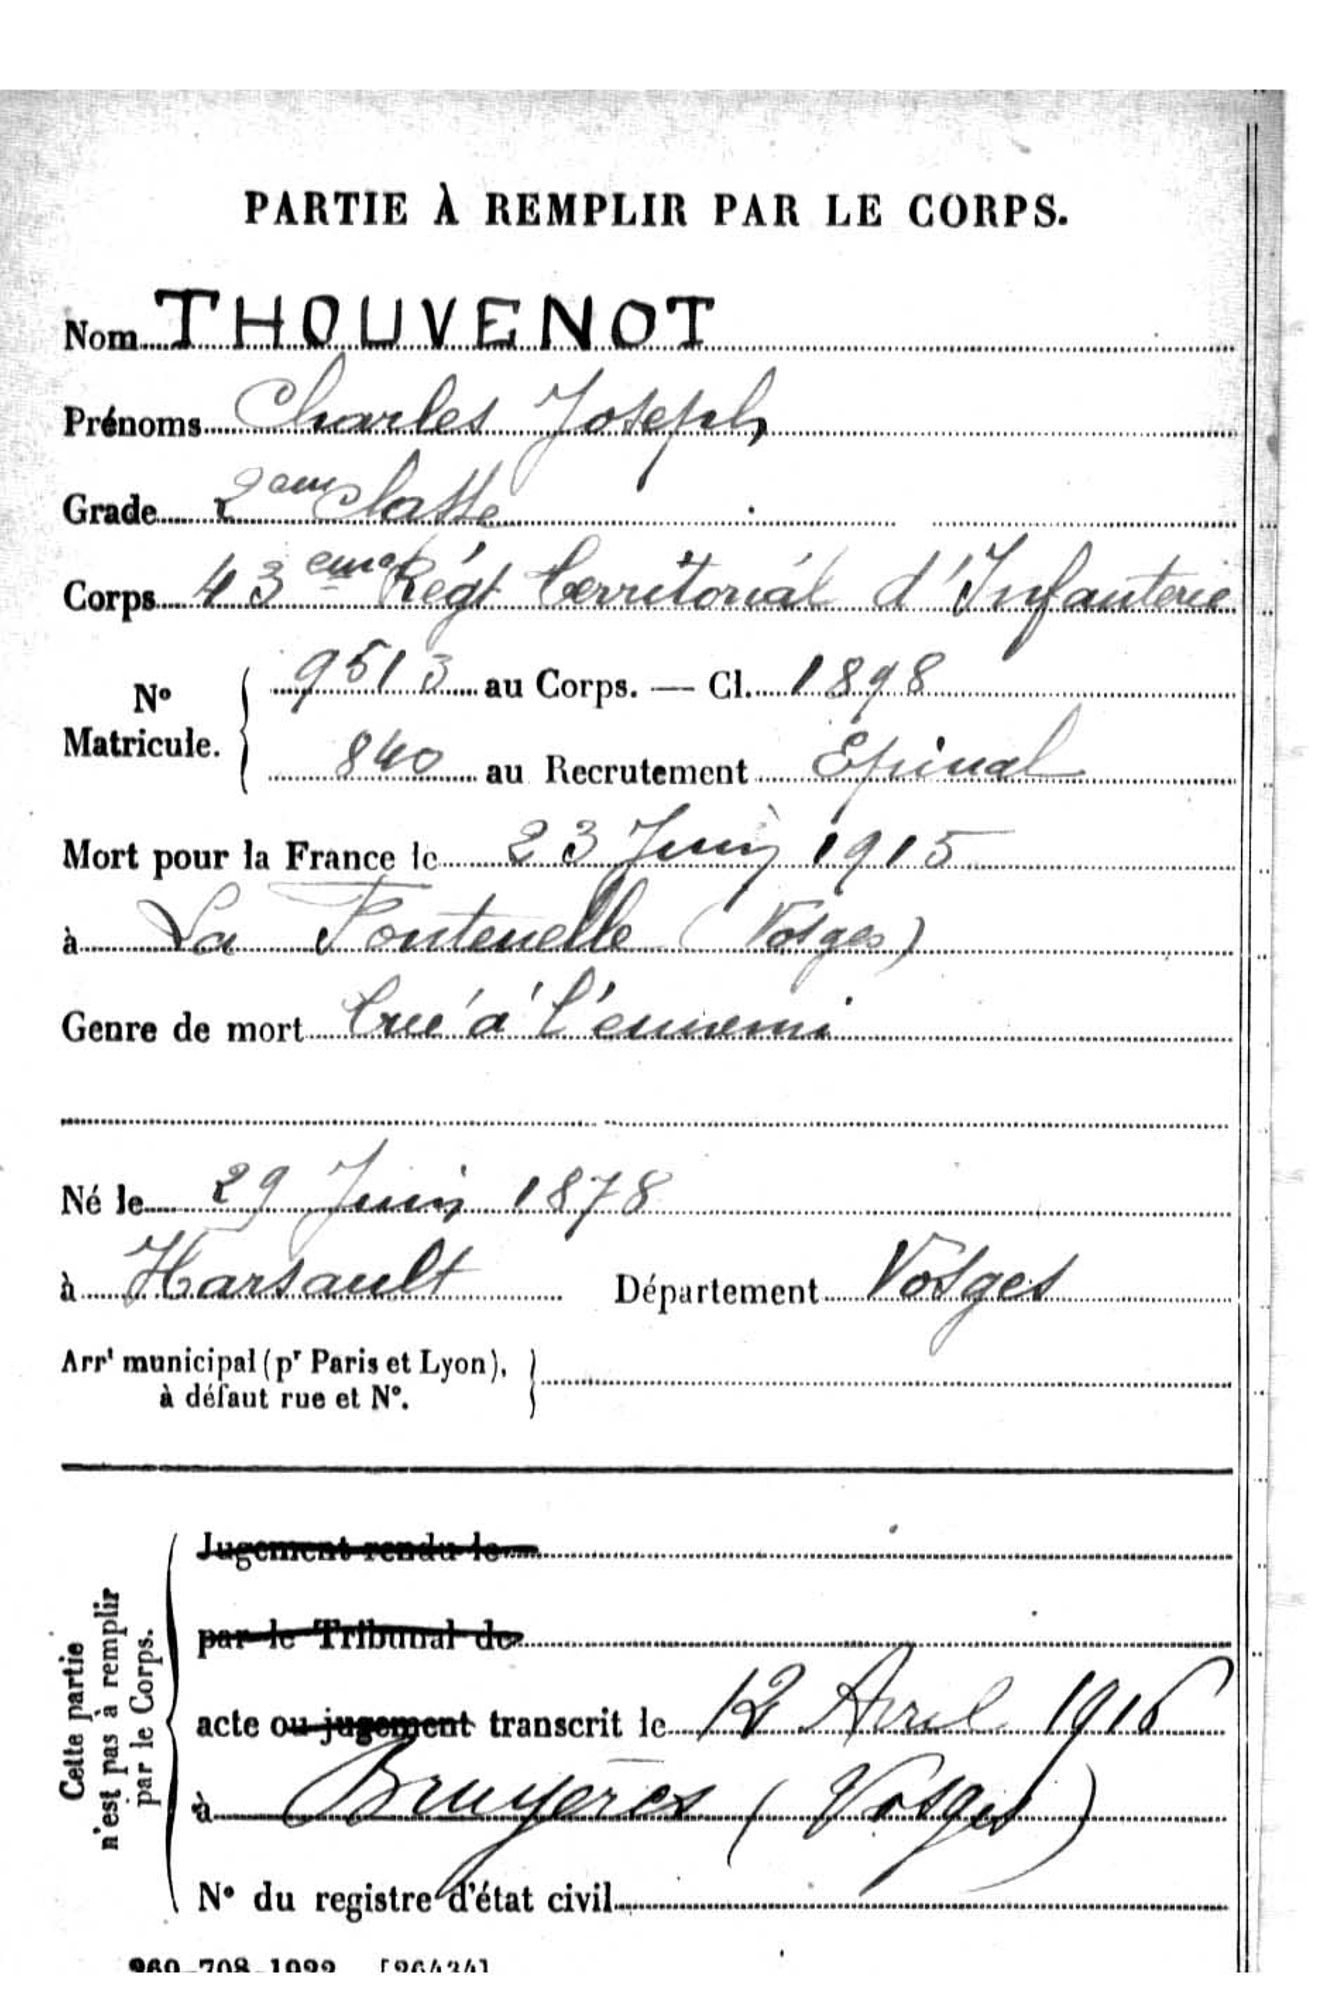 PARTIE À REMPLIR PAR LE CORPS.
Nom THOUVENOT
Prénoms Charles Joseph
Grade 2eme Classe
Corps 43eme Régt Territorial d'Infanterie
No Matricule. 9513 au Corps. — Cl. 1898
840 au Recrutement Epinal
Mort pour la France le 23 Juin 1915
à La Fontenelle (Vosges)
Genre de mort Tué à l'ennemi
Né le 29 Juin 1878
à Harsault Département Vosges
Arrt municipal (pr Paris et Lyon),
à défaut rue et No.
Cette partie
n'est pas à remplir
par le Corps.
Jugement rendu le
par le Tribunal de
acte ou jugement transcrit le 12 Avril 1916
à Bruyères (Vosges)
No du registre d'état civil
960-708-1922. [26434]